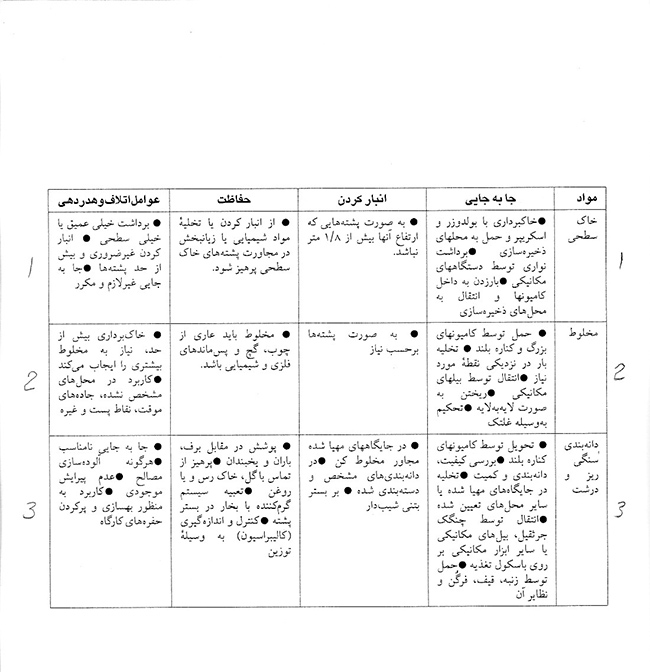 مواد
جا به جایی
انبار کردن
حفاظت
عوامل اتلاف و هدردهی
1
خاک
سطحی
● خاکبرداری با بولدوزر و
اسکریپر و حمل به محلهای
ذخیره‌سازی ● برداشت
نواری توسط دستگاههای
مکانیکی ● بارزدن به داخل
کامیونها و انتقال به
محل‌های ذخیره‌سازی
● به صورت پشته‌هایی که
ارتفاع آنها بیش از ۱/۸ متر
نباشد.
● از انبار کردن یا تخلیهٔ
مواد شیمیایی یا زیانبخش
در مجاورت پشته‌های خاک
سطحی پرهیز شود.
● برداشت خیلی عمیق یا
خیلی سطحی ● انبار
کردن غیرضروری و بیش
از حد پشته‌ها ● جا به
جایی غیرلازم و مکرر
1
2
مخلوط
● حمل توسط کامیونهای
بزرگ و کناره بلند ● تخلیه
بار در نزدیکی نقطهٔ مورد
نیاز ● انتقال توسط بیلهای
مکانیکی ● ریختن به
صورت لایه‌به‌لایه ● تحکیم
به‌وسیله غلتک
● به صورت پشته‌ها
برحسب نیاز
● مخلوط باید عاری از
چوب، گچ و پس‌ماندهای
فلزی و شیمیایی باشد.
● خاک‌برداری بیش از
حد، نیاز به مخلوط
بیشتری را ایجاب می‌کند
● کاربرد در محل‌های
مشخص نشده، جاده‌های
موقت، نقاط پست و غیره
2
3
دانه‌بندی
سنگی
ریز و
درشت
● تحویل توسط کامیونهای
کناره بلند ● بررسی کیفیت،
دانه‌بندی و کمیت ● تخلیه
در جایگاه‌های مهیا شده یا
سایر محل‌های تعیین شده
● انتقال توسط چنگک
جرثقیل، بیل‌های مکانیکی
یا سایر ابزار مکانیکی بر
روی باسکول تغذیه ● حمل
توسط زنبه، قیف، فرگُن و
نظایر آن
● در جایگاههای مهیا شده
مجاور مخلوط کن ● در
دانه‌بندی‌های مشخص و
دسته‌بندی شده ● بر بستر
بتنی شیب‌دار
● پوشش در مقابل برف،
باران و یخبندان ● پرهیز از
تماس باگل، خاک رس و یا
روغن ● تعبیه سیستم
گرم‌کننده با بخار در بستر
پشته ● کنترل و اندازه‌گیری
(کالیبراسیون) به وسیلهٔ
توزین
● جا به جایی نامناسب
● هرگونه آلوده‌سازی
مصالح ● عدم پیرایش
موجودی ● کاربرد به
منظور بهسازی و پرکردن
حفره‌های کارگاه
3